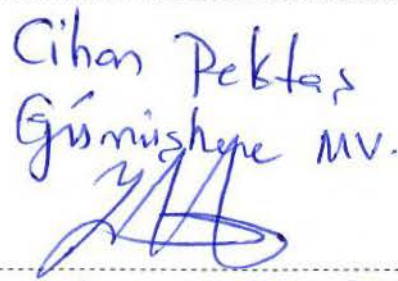 Cihan Pektaş
Gümüşhane MV.